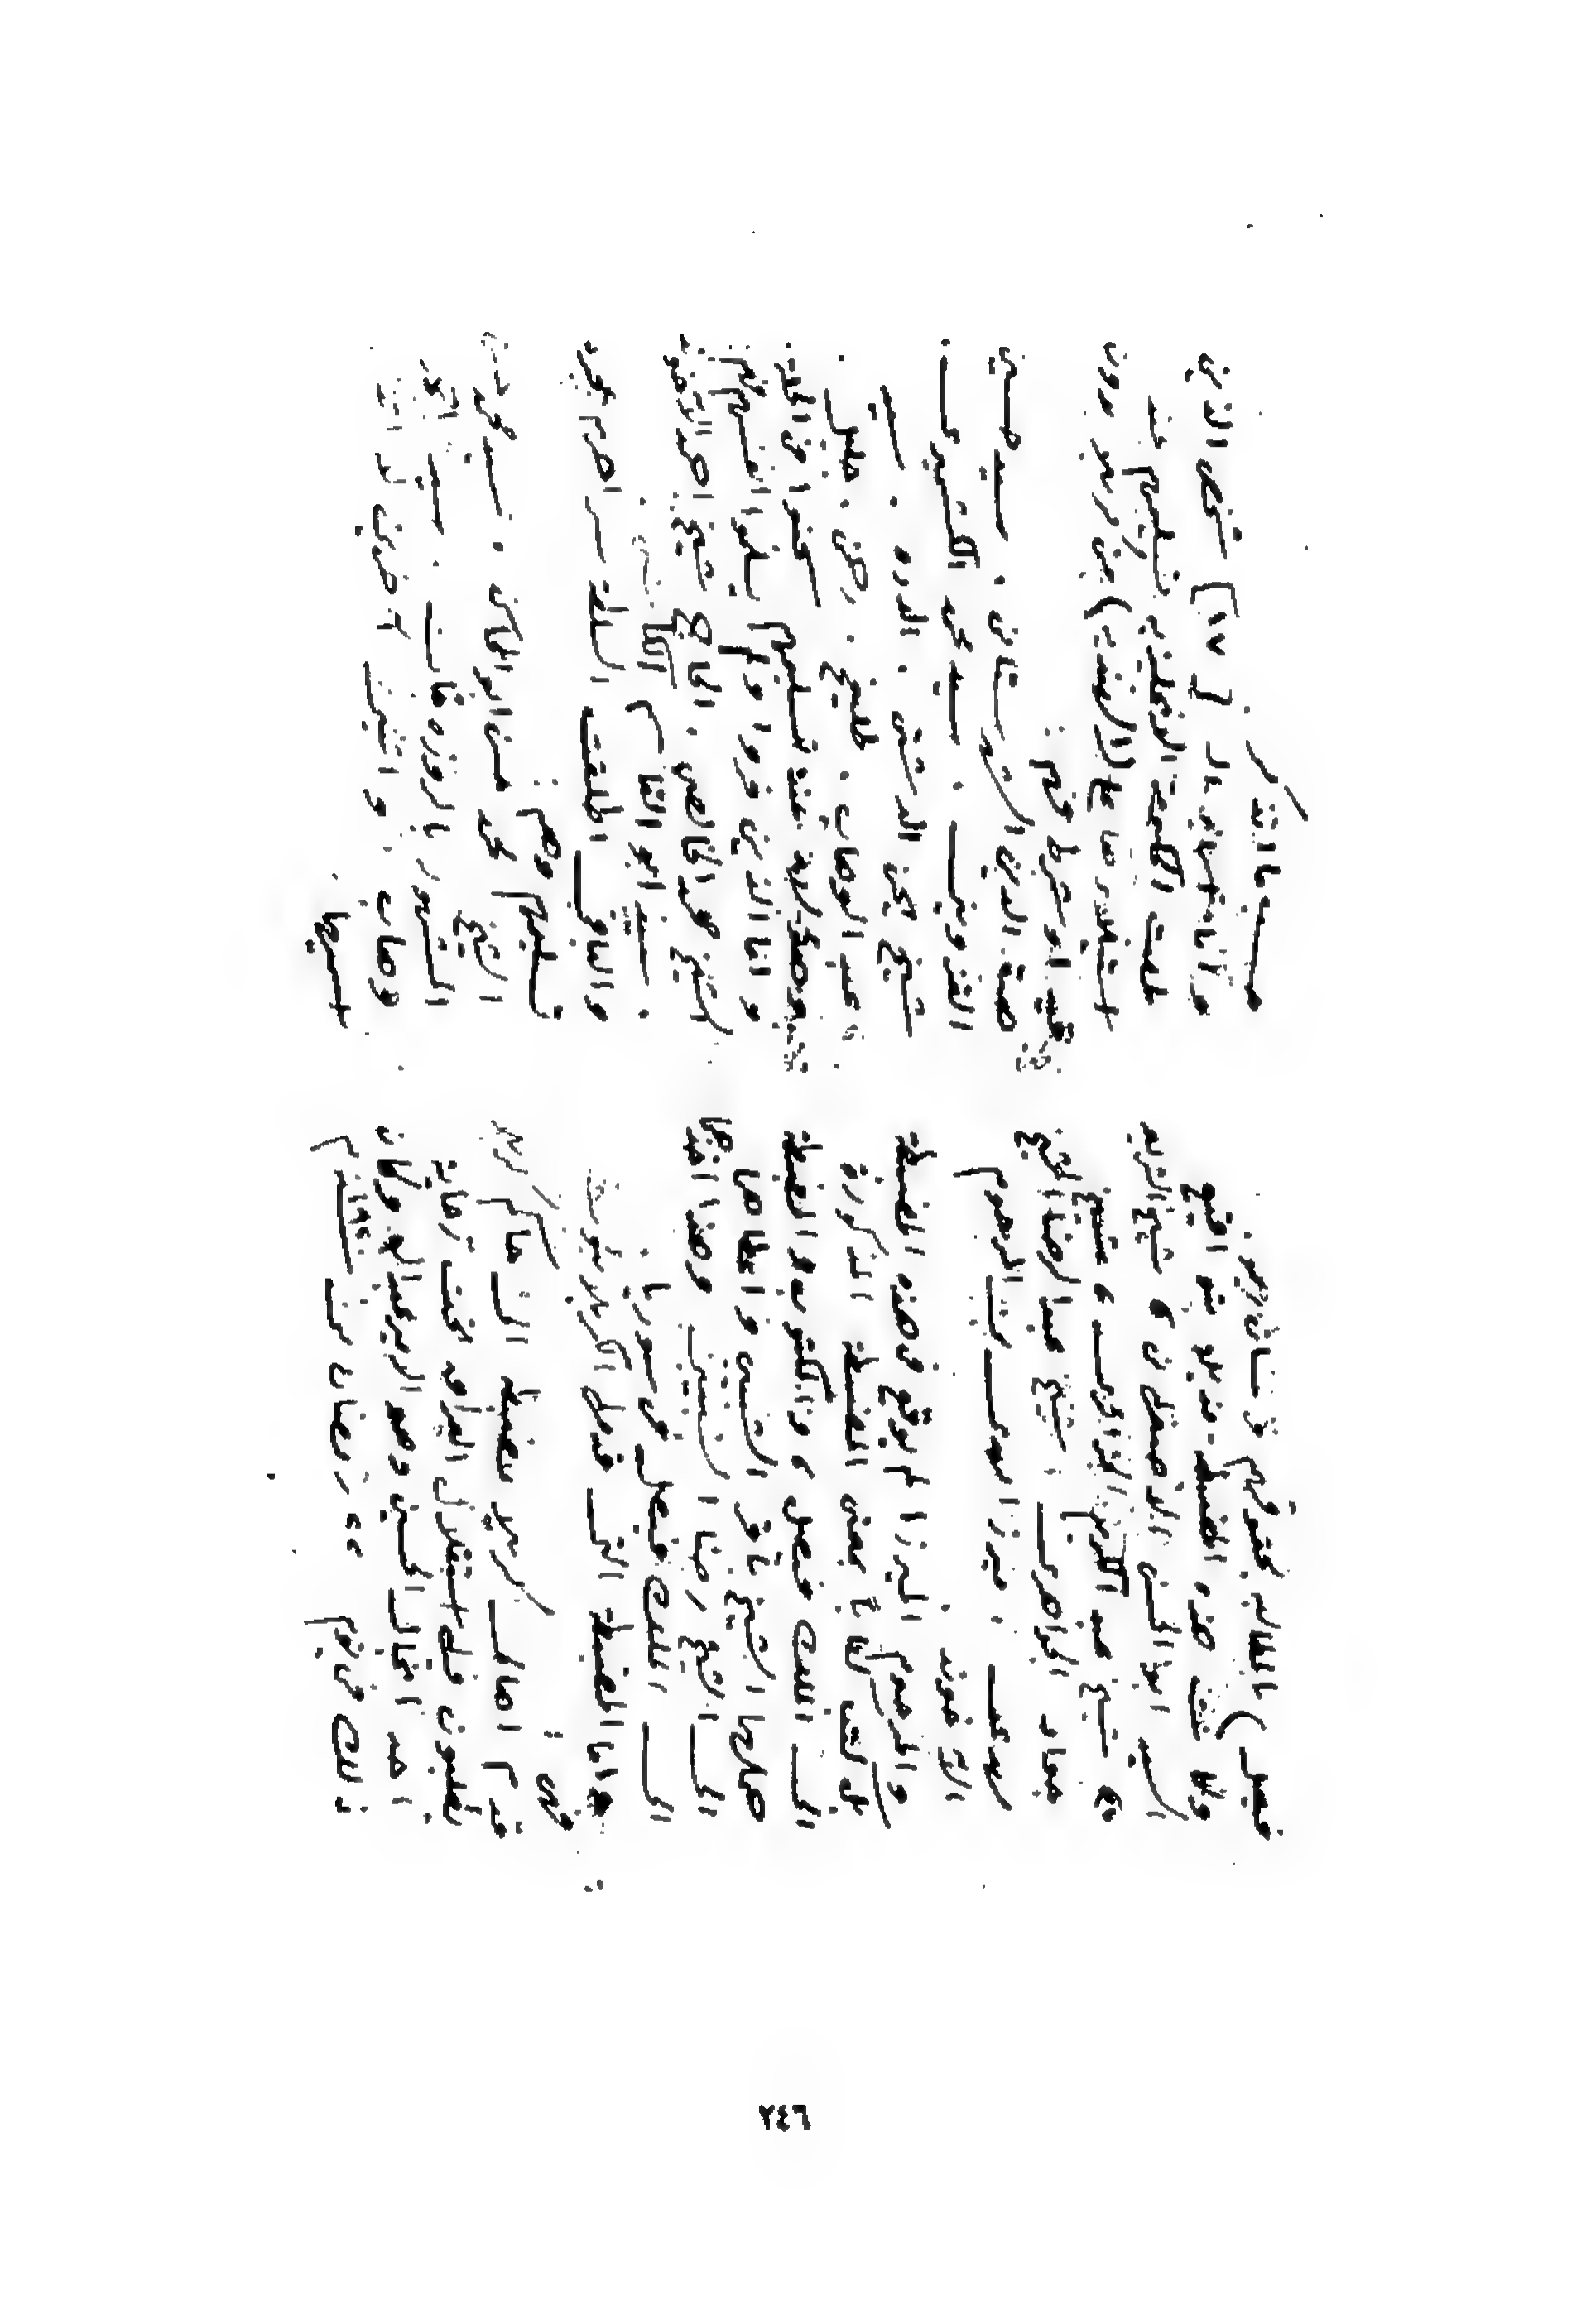 فيصل) بالمطالبه بحقوقهم في
ولقد ثبتت هذه المضبطه مذيله بتواقيع
السيد ابو الحسن الاصفهاني و شيخ الشريعه
و شيخ عبد الكريم الجزائري و شيخ
جواد الجواهري . شيخ عبد الرضا الشيخ
مهدي . ميرزا مهدي بن المرحوم
الآخوند .
والمرحوم الميرزا لم يوقع في هذه المضبطه
بل كتب كتاباً بمعنى المضبطه المذكورة
الى الملك فيصل و المكتوب و المضبطه
حملها الشيخ باقر الشبيبي و اعطاها
الى الشيخ رضا الشبيبي وهذا اخذها
الى الملك فيصل في سوريا .
واما المضبطه التي قدمها الكربلائيون
فهي :
قدم اهالي كربلاء مضبطه الى حاكم كربلاء
يطلبون فيها استقلال العراق تحت رعاية
احد انجال الحسين وهو الامير عبدالله وكان
ذلك في يوم ٢٢ رمضان من سنه
حسب ما اتذكر .
واما نهايه ال [١٧] شخص الذين
طلبت الحكومة الانكليزيه تسليمهم عند
استيلائها على (الهنديه) من غير بدون
قيد او شرط فهم :
هبة الدين الشهرستاني . سيد حسين
القزويني . سيد محمد الكشميري .
شيخ . سيد
عبد الوهاب . طليفح . رحمن . جليل .
وهؤلاء عند تسليمهم سجنوا في الحلة .
و اما الذين فروا ولم يسلموا انفسهم فهم
الشيخ محمد الخالصي . الحاج شيخ احمد الآخوند
. سيد ابو القاسم الكاشاني .
والباقي اطلقت السلطه سراحهم بمجرد
تسليمهم وهم :
الشيخ محمد حسن ابو المحاسن . سيد محمد
المشهور بالروزه خان . سيد احمد
وهاب . و اثنين آخرين لا اتذكر
اسميهما .
٢٤٦